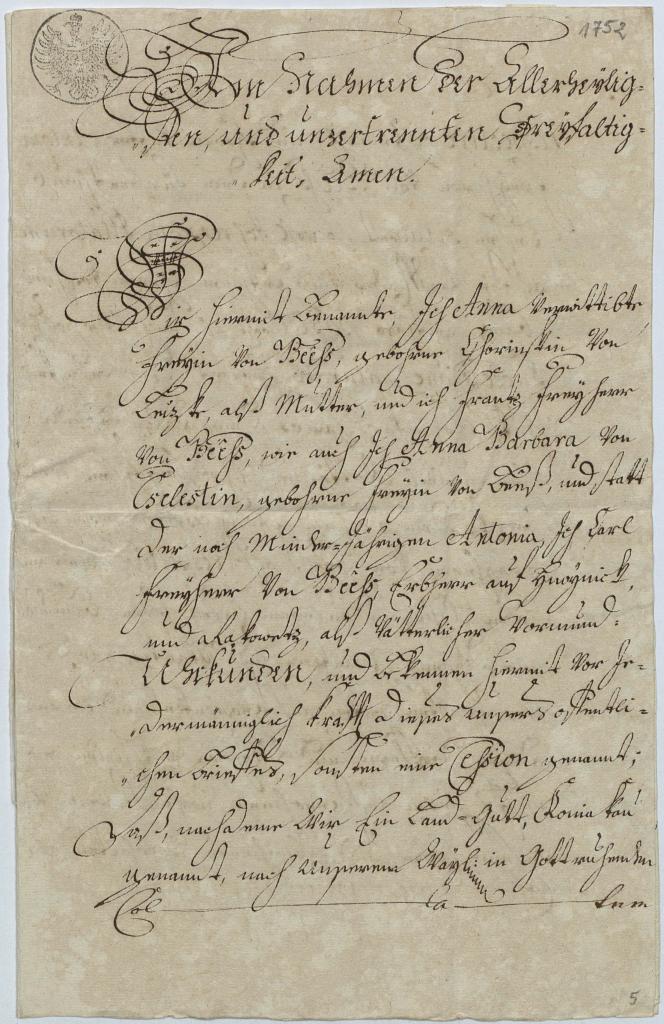 1752
Im Nahmen der Allerheylig-
sten, und unzertrennten Dreyfaltig-
keit, Amen.
Wir hiermit benannte, Ich Anna Verwittibte
Freyin Von Beeß, gebohrne Chorinskin Von
alß Mutter, und ich Frantz Freyherr
Von Beeß, wie auch Ich Anna Barbara Von
Tselestin, gebohrne Freyin Von Beeß, und statt
der noch Minder-Jährigen Antonia, Ich Carl
Freyherr Von Beeß, Erbherr auf
und alß Vätterlicher Vormund.
Uhrkunden, und bekennen hiermit Vor Je-
dermänniglich krafft dieses Unsers offentli-
chen brieffes, sonsten eine Cession genannt;
Daß, nachdeme Wir Ein Land-Gutt, Koniakau
genannt, nach Unserem Wäyl: in Gott ruhenden
5